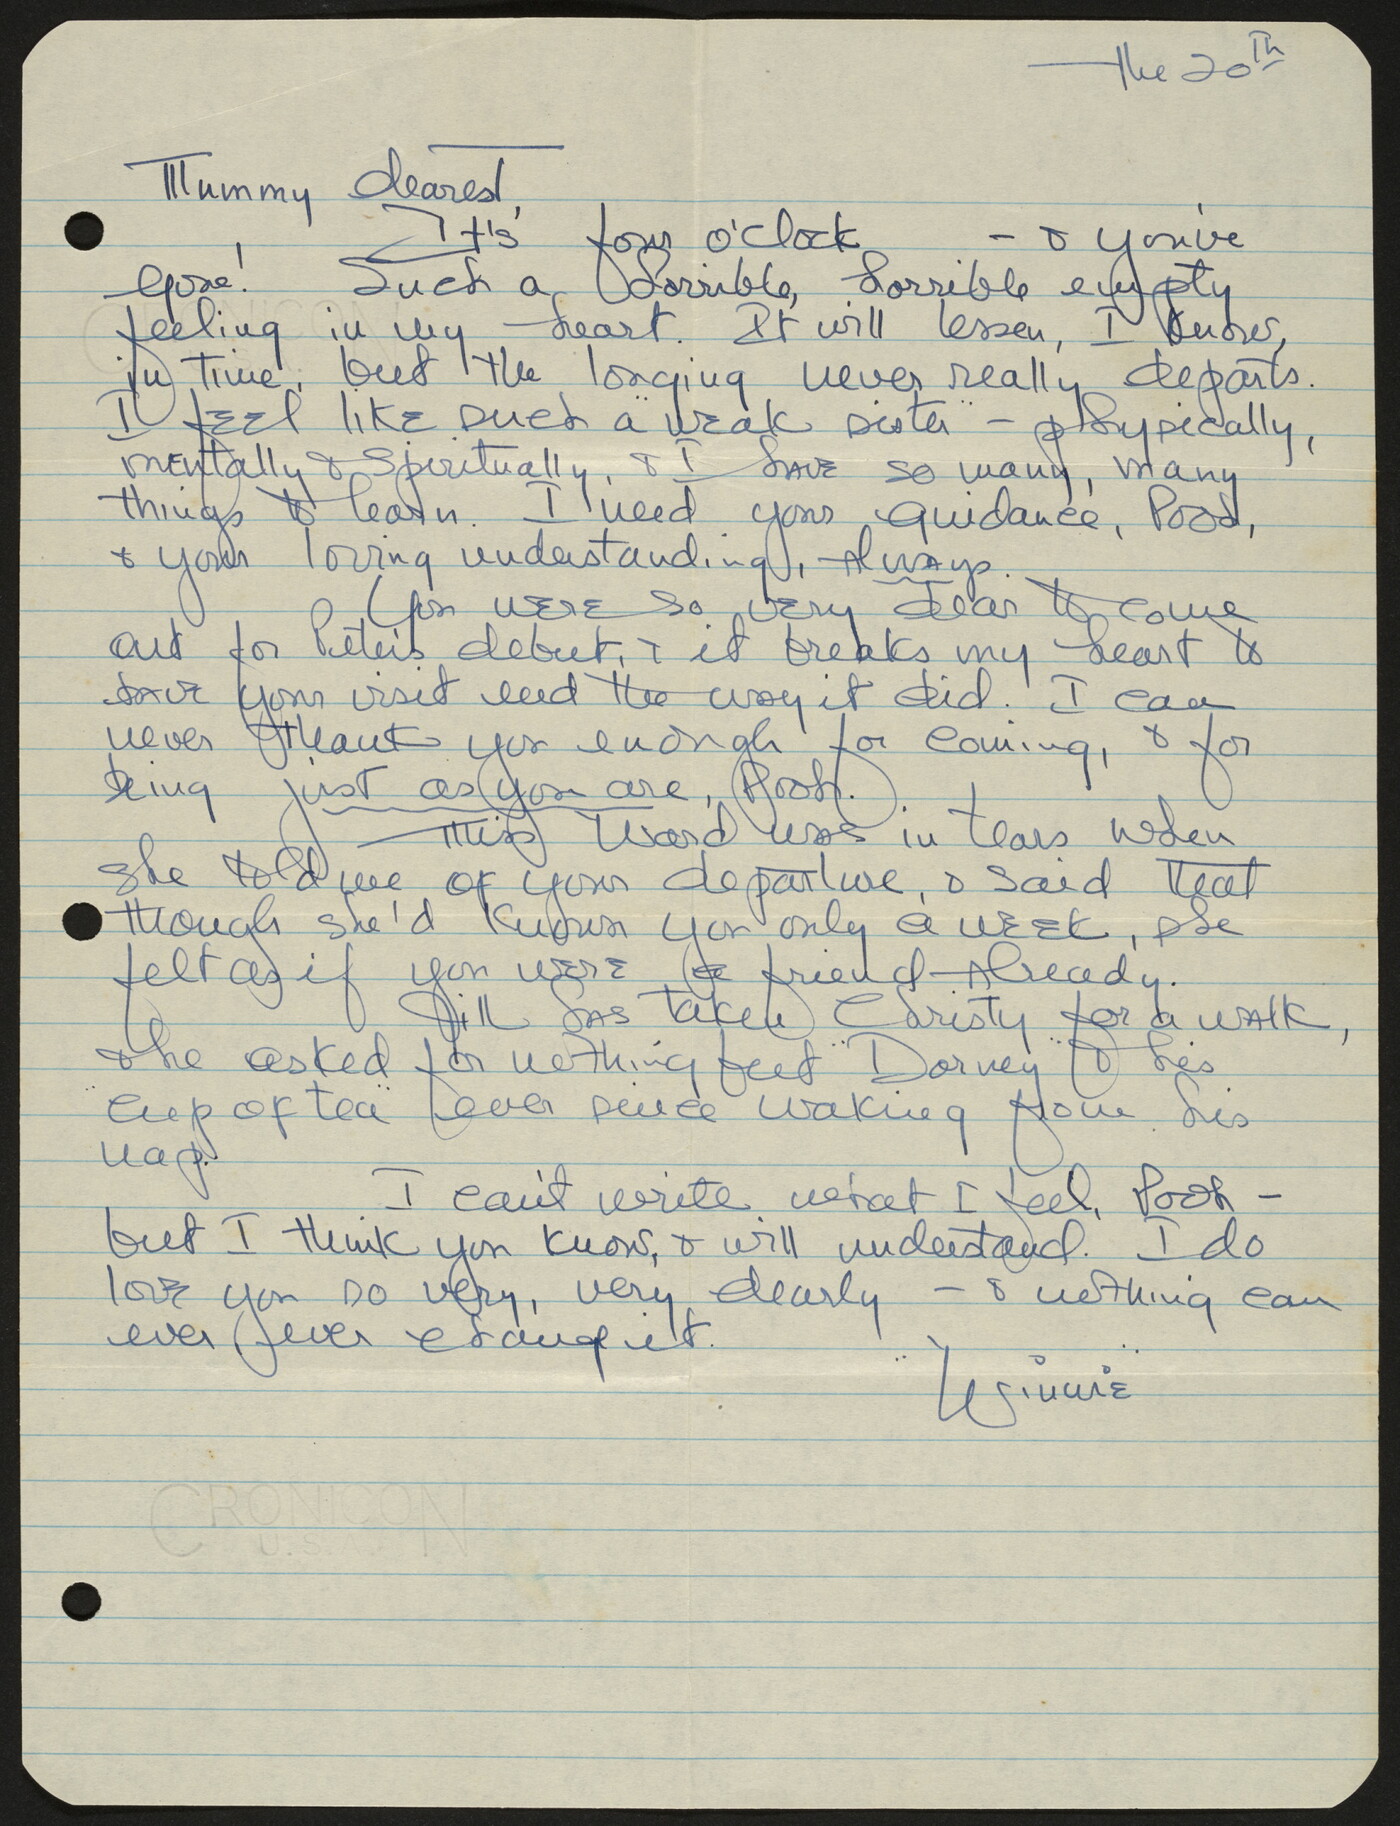 The 20th
Mummy dearest,
It's four o'clock - & you've
gone! Such a horrible, horrible empty
feeling in my heart. It will lessen, I know,
in time, but the longing never really departs.
I feel like such a "weak sister" - physically,
mentally & spiritually, & I have so many, many
things to learn. I need your guidance, Pooh,
& your loving understanding, always.
You were so very dear to come
out for Peter's debut, & it breaks my heart to
have your visit end the way it did. I can
never thank you enough for coming, & for
being just as you are, Pooh.
Miss Ward was in tears when
she told me of your departure, & said that
though she'd known you only a week, she
felt as if you were a friend already.
Jill has taken Christy for a walk,
& he asked for nothing but "Dorney" & his
"cup of tea" ever since waking from his
nap.
I can't write what I feel, Pooh -
but I think you know, & will understand. I do
love you so very, very dearly - & nothing can
ever ever change it.
"Winnie"
CRONICON
U.S.A.